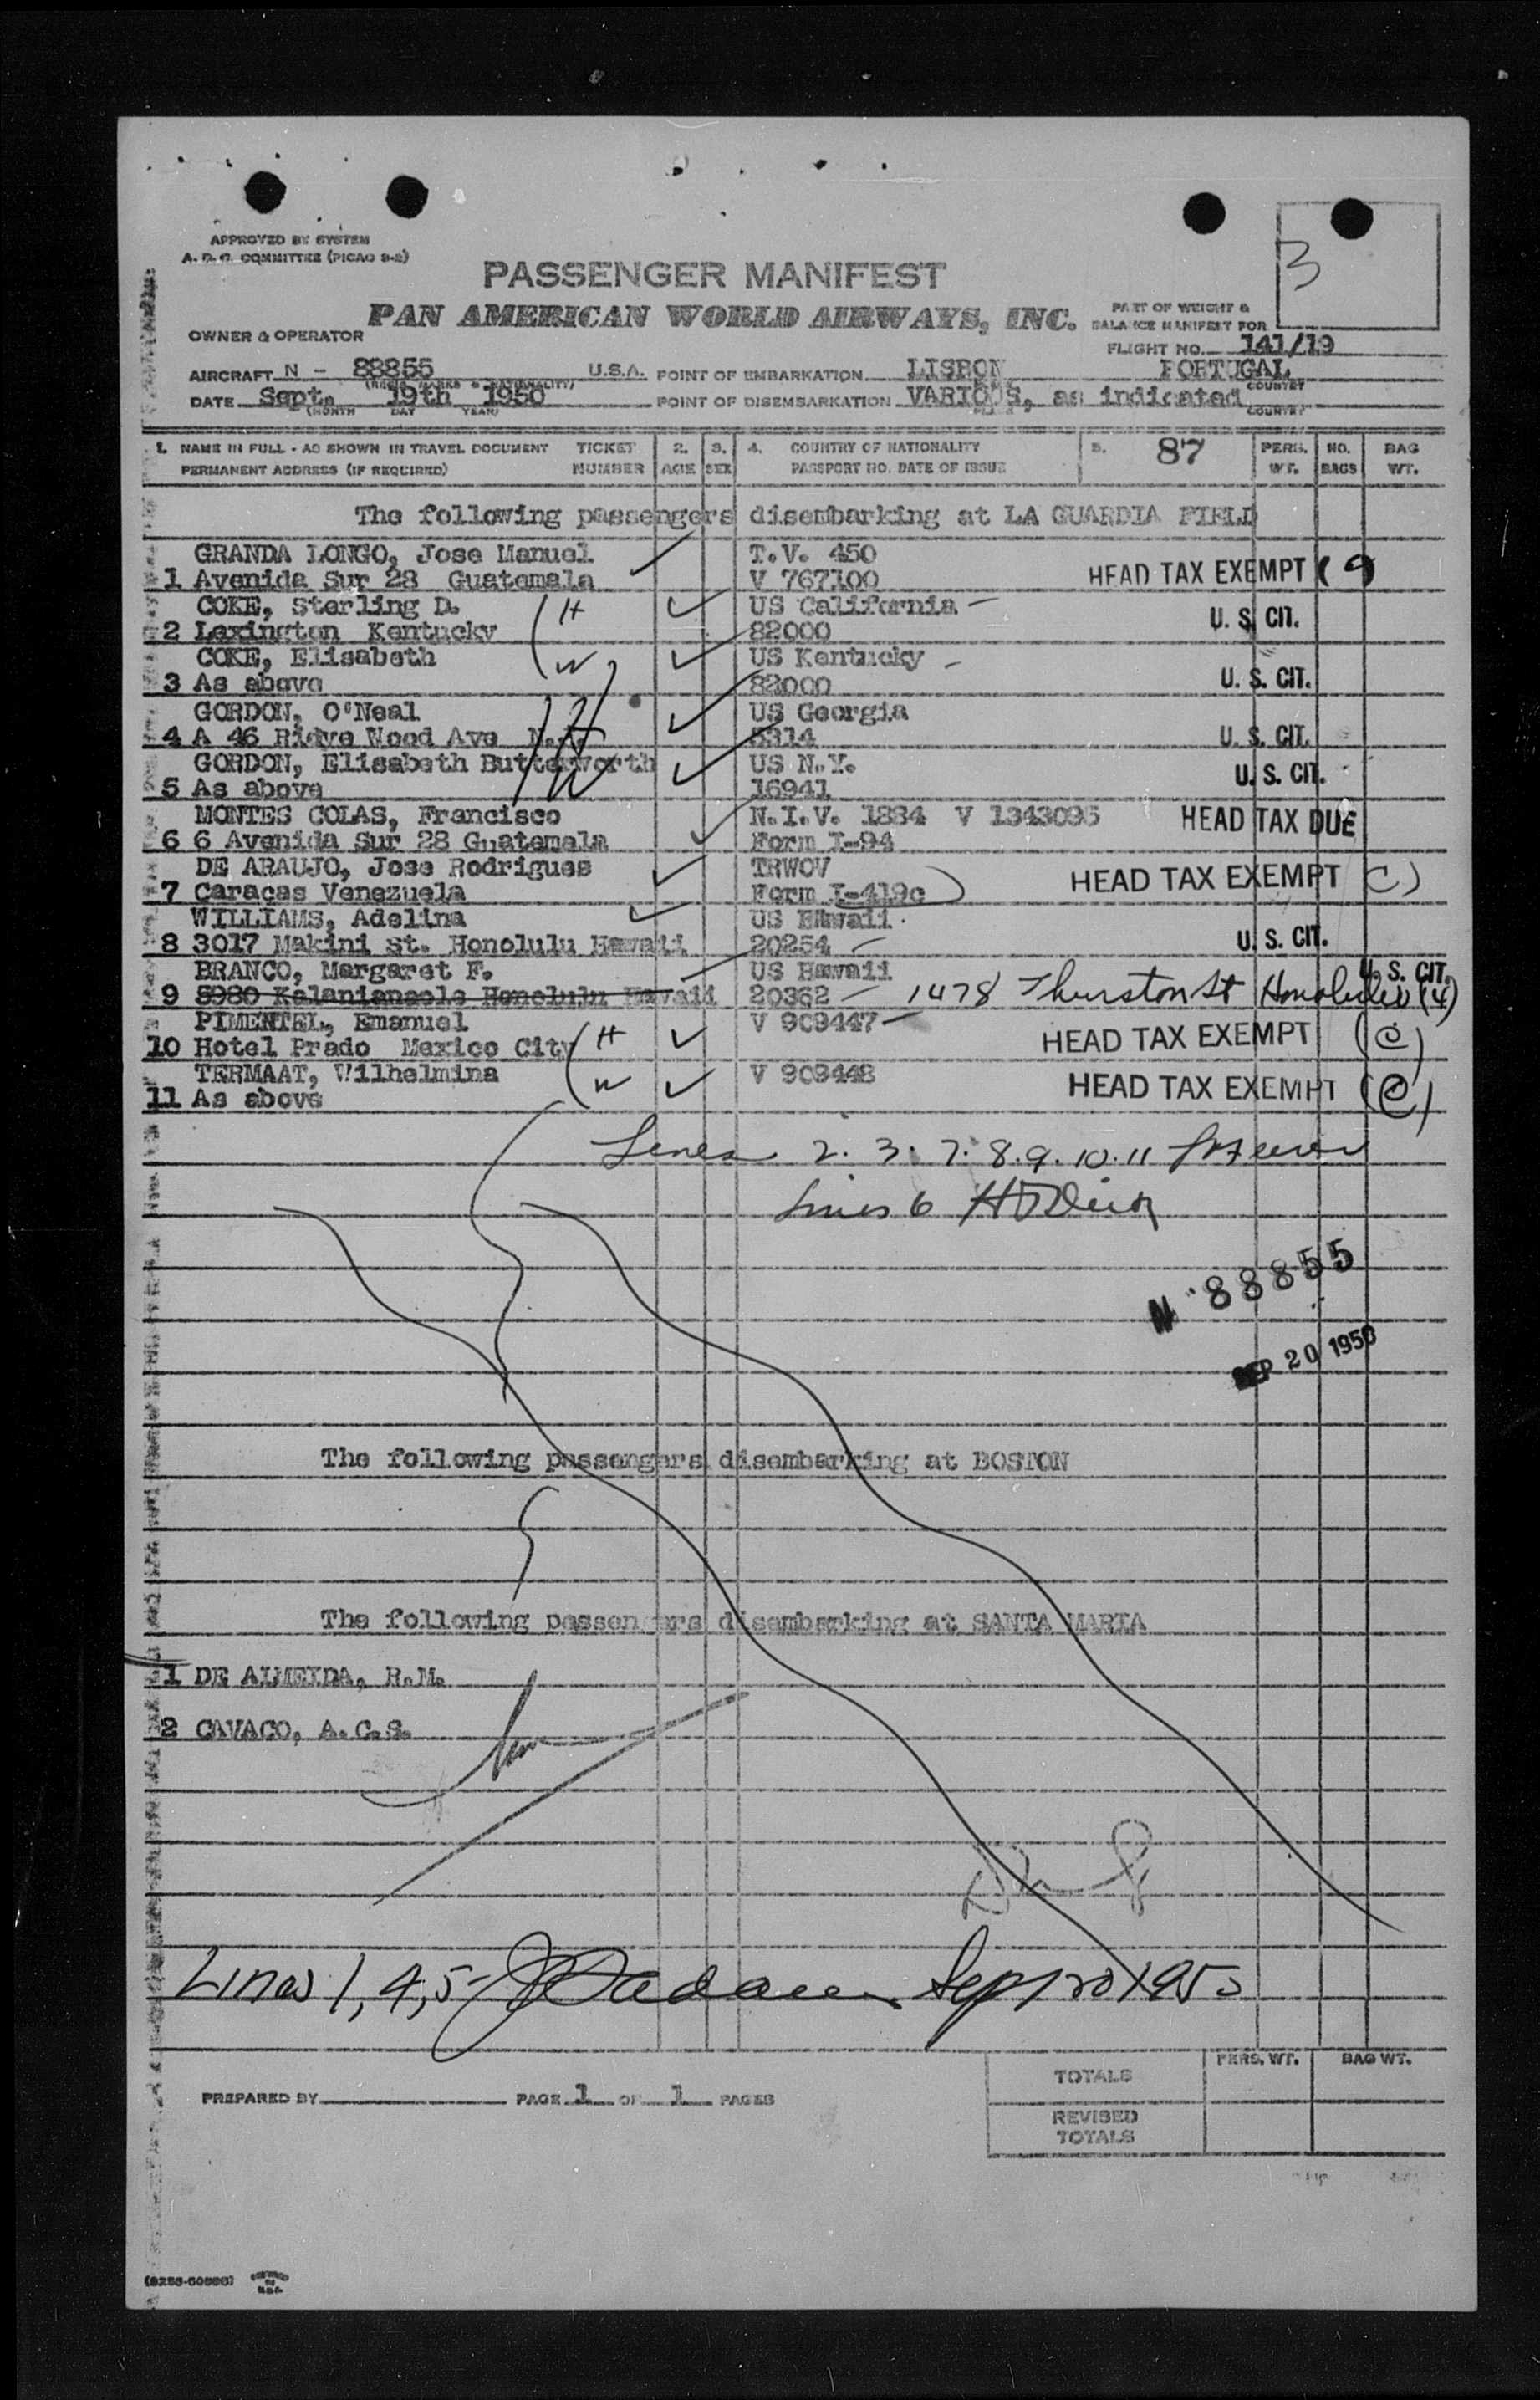 APPROVED BY SYSTEM
A. D. C. COMMITTEE (PICAO 9-2)
3
PASSENGER MANIFEST
PAN AMERICAN WORLD AIRWAYS, INC.
PART OF WEIGHT &
BALANCE MANIFEST FOR
OWNER & OPERATOR
FLIGHT NO. 141/19
AIRCRAFT N - 88855 U.S.A. POINT OF EMBARKATION LISBON PORTUGAL
(REGIS. MARKS & NATIONALITY) COUNTRY
DATE Sept. 19th 1950 POINT OF DISEMBARKATION VARIOUS, as indicated
(MONTH DAY YEAR) PLACE COUNTRY
1. NAME IN FULL - AS SHOWN IN TRAVEL DOCUMENT TICKET 2. 3. 4. COUNTRY OF NATIONALITY 5. 87 PERS. NO. BAG
PERMANENT ADDRESS (IF REQUIRED) NUMBER AGE SEX PASSPORT NO. DATE OF ISSUE WT. BAGS WT.
The following passengers disembarking at LA GUARDIA FIELD
GRANDA LONGO, Jose Manuel T.V. 450
1 Avenida Sur 28 Guatemala V 767100 HEAD TAX EXEMPT
COKE, Sterling D. H US California
2 Lexington Kentucky 82000 U. S. CIT.
COKE, Elisabeth W US Kentucky
3 As above 82000 U. S. CIT.
GORDON, O'Neal H US Georgia
4 A 46 Ridve Wood Ave N.Y. 5314 U. S. CIT.
GORDON, Elisabeth Butterworth W US N.Y.
5 As above 16941 U. S. CIT.
MONTES COLAS, Francisco N.I.V. 1884 V 1343095 HEAD TAX DUE
6 6 Avenida Sur 28 Guatemala Form I-94
DE ARAUJO, Jose Rodrigues TRWOV
7 Caracas Venezuela Form I-419c HEAD TAX EXEMPT (C)
WILLIAMS, Adelina US Hawaii
8 3017 Makini st. Honolulu Hawaii 20254 U. S. CIT.
BRANCO, Margaret F. US Hawaii U. S. CIT.
9 5980 Kalanianaole Honolulu Hawaii 20362 - 1478 Thurston St Honolulu (4)
PIMENTEL, Emanuel H V 909447
10 Hotel Prado Mexico City HEAD TAX EXEMPT (C)
TERMAAT, Wilhelmina W V 909448
11 As above HEAD TAX EXEMPT (C)
Lines 2. 3. 7. 8. 9. 10. 11
Lines 6
N 88855
SEP 20 1950
The following passengers disembarking at BOSTON
The following passengers disembarking at SANTA MARIA
1 DE ALMEIDA, R.M.
2 CAVACO, A.C.S.
Lines 1, 4, 5 Sept 20 1950
PERS. WT. BAG WT.
TOTALS
PREPARED BY PAGE 1 OF 1 PAGES
REVISED
TOTALS
PRINTED
IN
U.S.A.